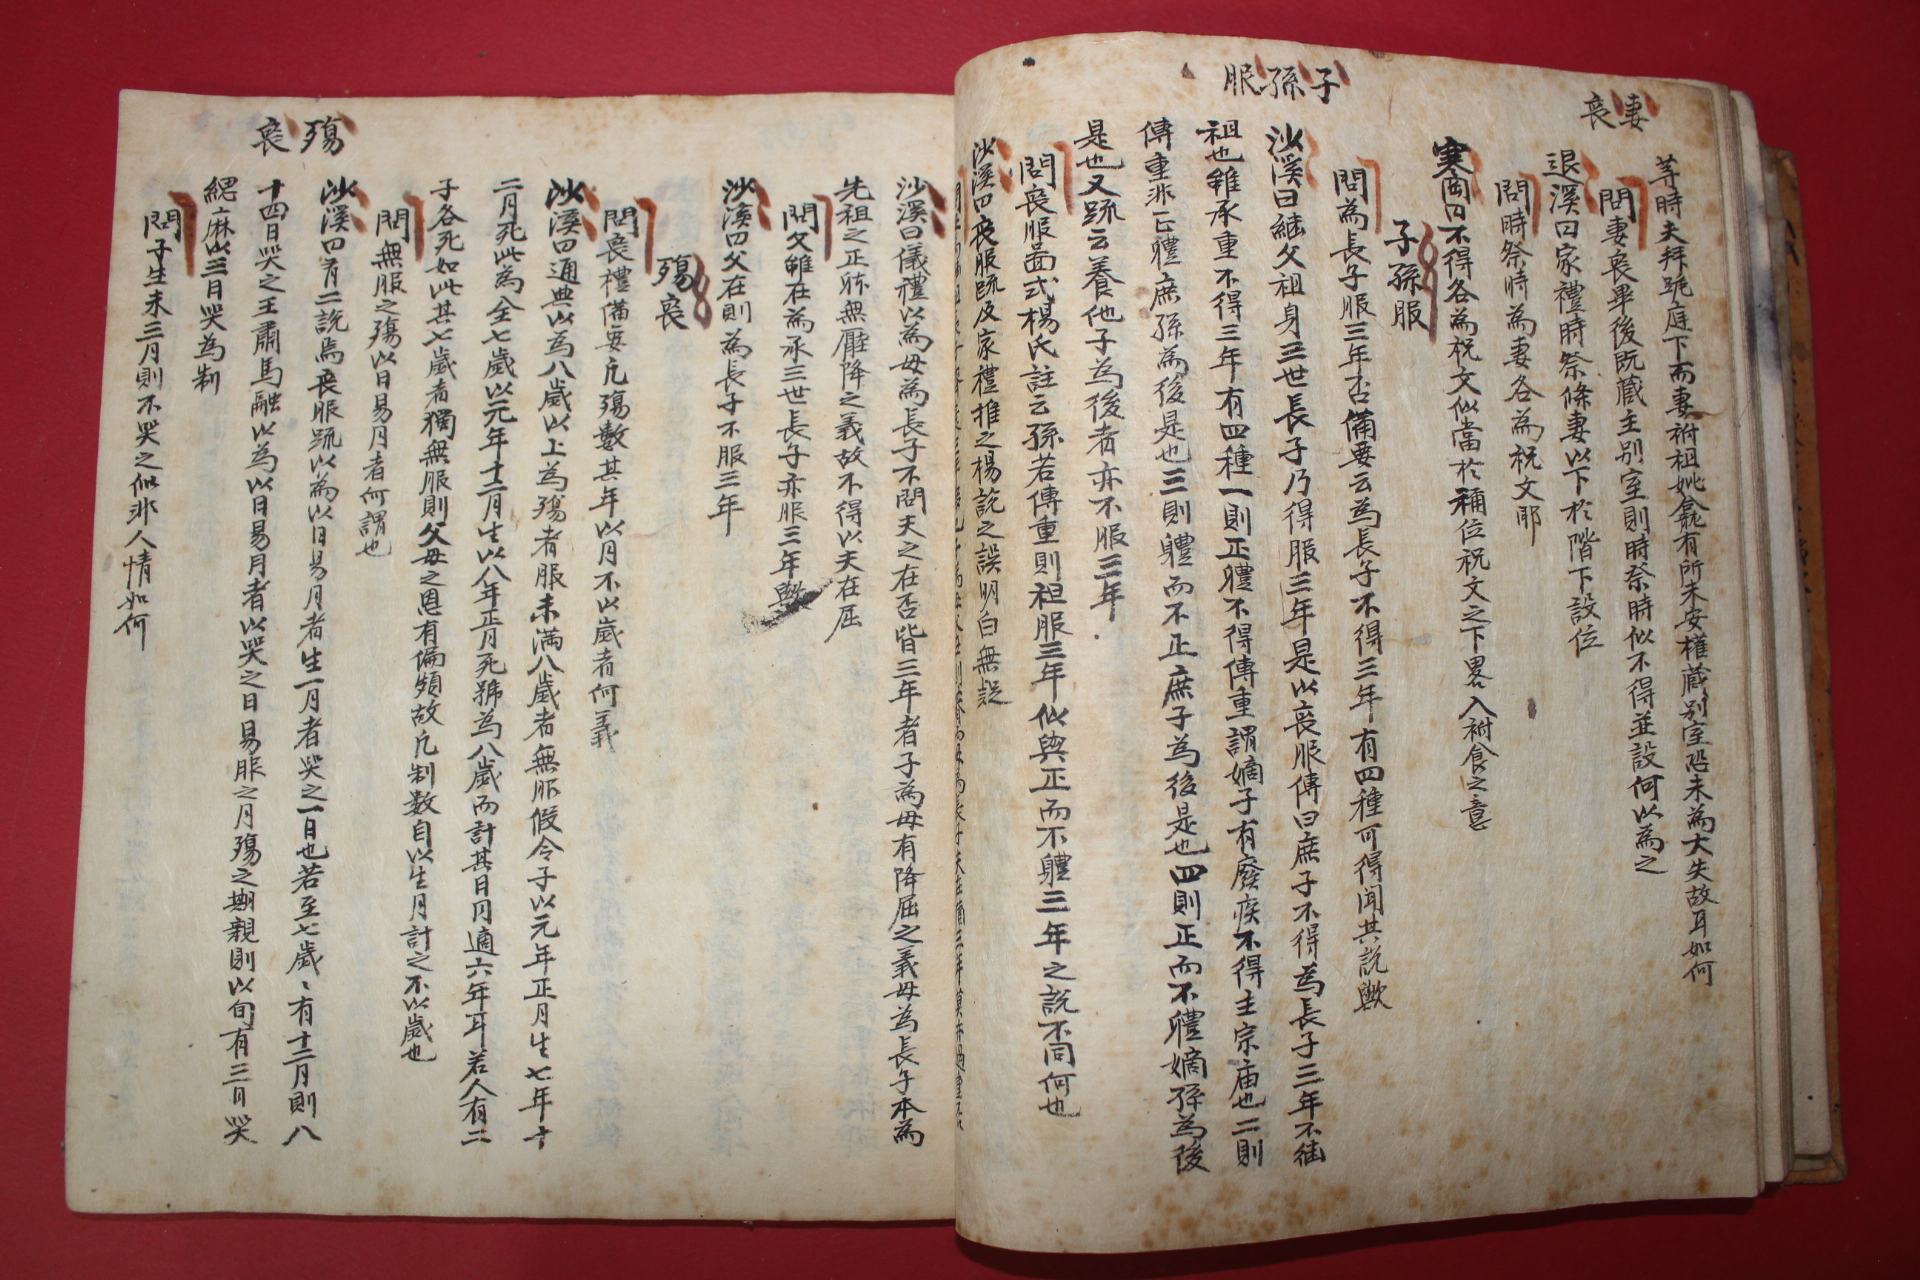 妻喪
子孫服
等時夫拜跪庭下而妻祔祖妣龕有所未安權蔵別室恐未為大失故耳如何
問妻喪畢後既蔵主別室則時祭時似不得並設何以為之
退溪曰家禮時祭條妻以下於階下設位
問時祭時為妻各為祝文耶
寒岡曰不得各為祝文似當於祢位祝文之下畧入祔食之意
子孫服
問為長子服三年否備要云為長子不得三年有四種可得聞其説歟
沙溪曰継父祖身三世長子乃得服三年是以喪服傳曰庶子不得為長子三年不継
祖也雖承重不得三年有四種一則正軆不得傳重謂嫡子有廢疾不得主宗庙也二則
傳重非正軆庶孫為後是也三則軆而不正庶子為後是也四則正而不軆嫡孫為後
是也又疏云養他子為後者亦不服三年
問喪服啚式楊氏註云孫若傳重則祖服三年似與正而不軆三年之説不同何也
沙溪曰喪服疏及家禮推之楊説之誤明白無疑
沙溪曰儀禮以為母為長子不問夫之在否皆三年者子為母有降屈之義母為長子本為
先祖之正軆無厭降之義故不得以夫在屈
問父雖在為承三世長子亦服三年歟
沙溪曰父在則為長子不服三年
殤喪
殤喪
問喪禮備要凡殤數其年以月不以歲者何義
沙溪曰通典以為八歲以上為殤者服未滿八歲者無服假令子以元年正月生七年十
二月死此為全七歲以元年十二月生以八年正月死號為八歲而計其日月適六年耳若人有二
子各死如此其七歲者獨無服則父母之恩有偏頗故凡制数自以生月計之不以歲也
問無服之殤以日易月者何謂也
沙溪曰有二説焉喪服疏以為以日易月者生一月者哭之一日也若至七歲〻有十二月則八
十四日哭之王肅馬融以為以日易月者以哭之日易服之月殤之期親則以旬有三日哭
緦麻以三日哭為制
問子生未三月則不哭之似非人情如何